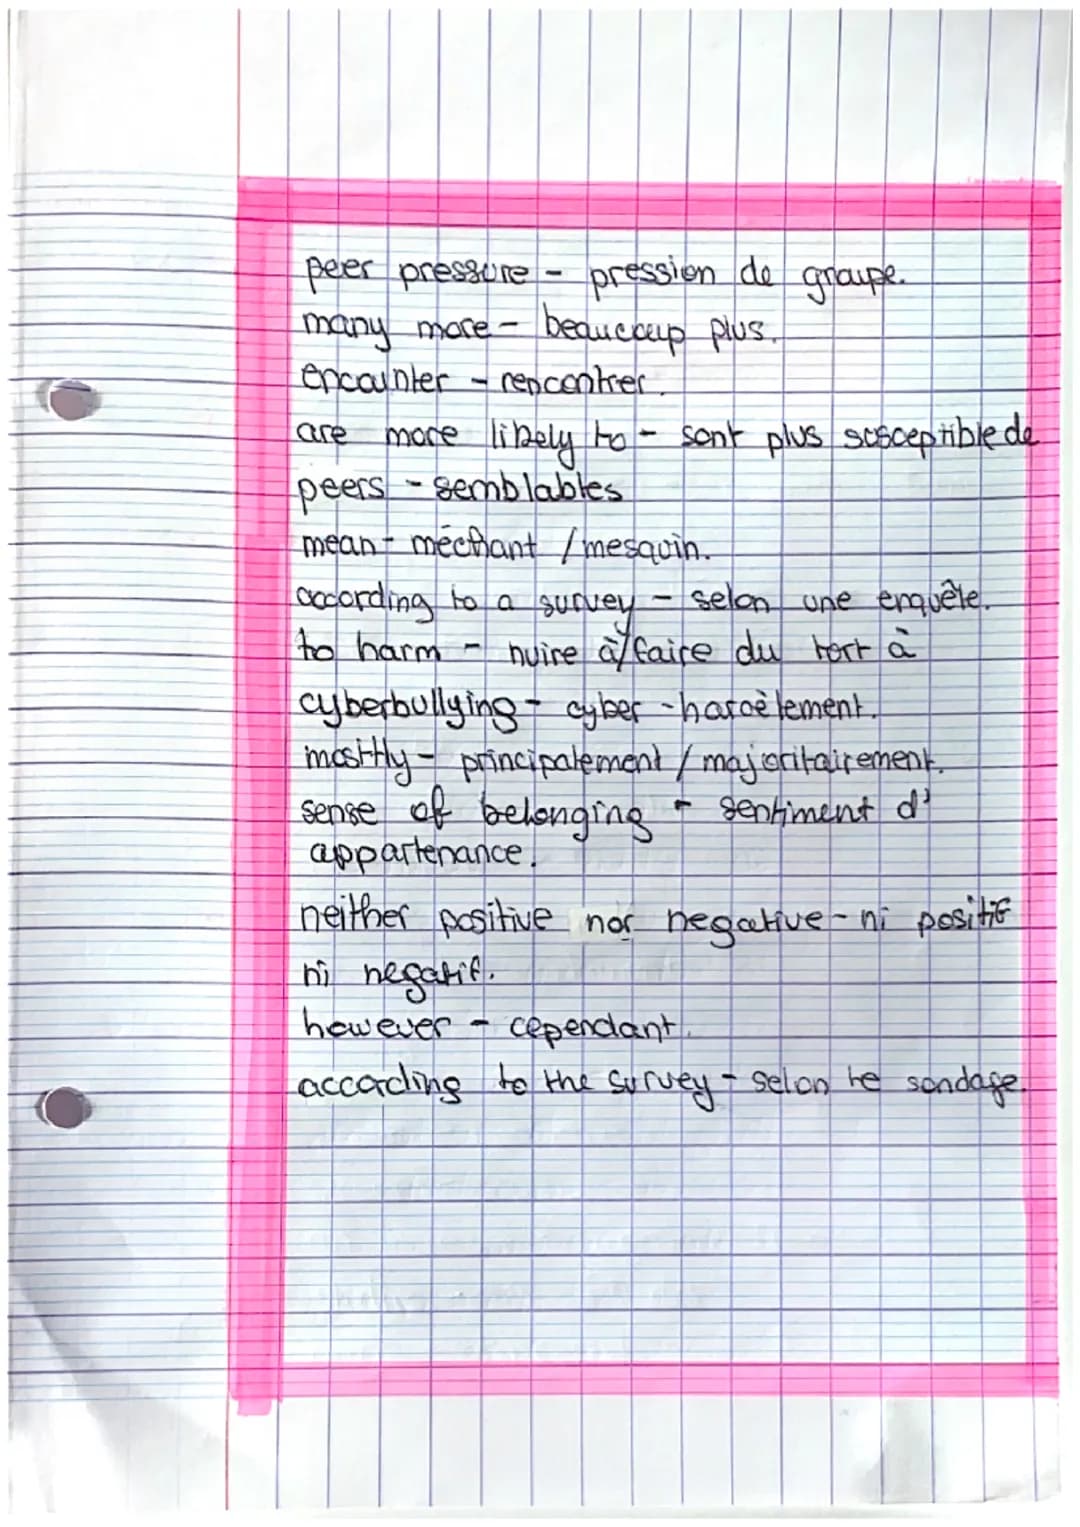 peer pressure - pression de groupe.
many more - beaucoup plus.
encounter - rencontrer.
are more likely to - sont plus susceptible de
peers - semblables
mean - méchant / mesquin.
according to a survey - selon une enquête.
to harm - nuire à/faire du tort à
cyberbullying - cyber-harcèlement.
mosttly - principalement / majoritairement.
sense of belonging - sentiment d'
appartenance.
neither positive nor negative - ni positif
ni negatif.
however - cependant.
according to the survey - selon le sondage.